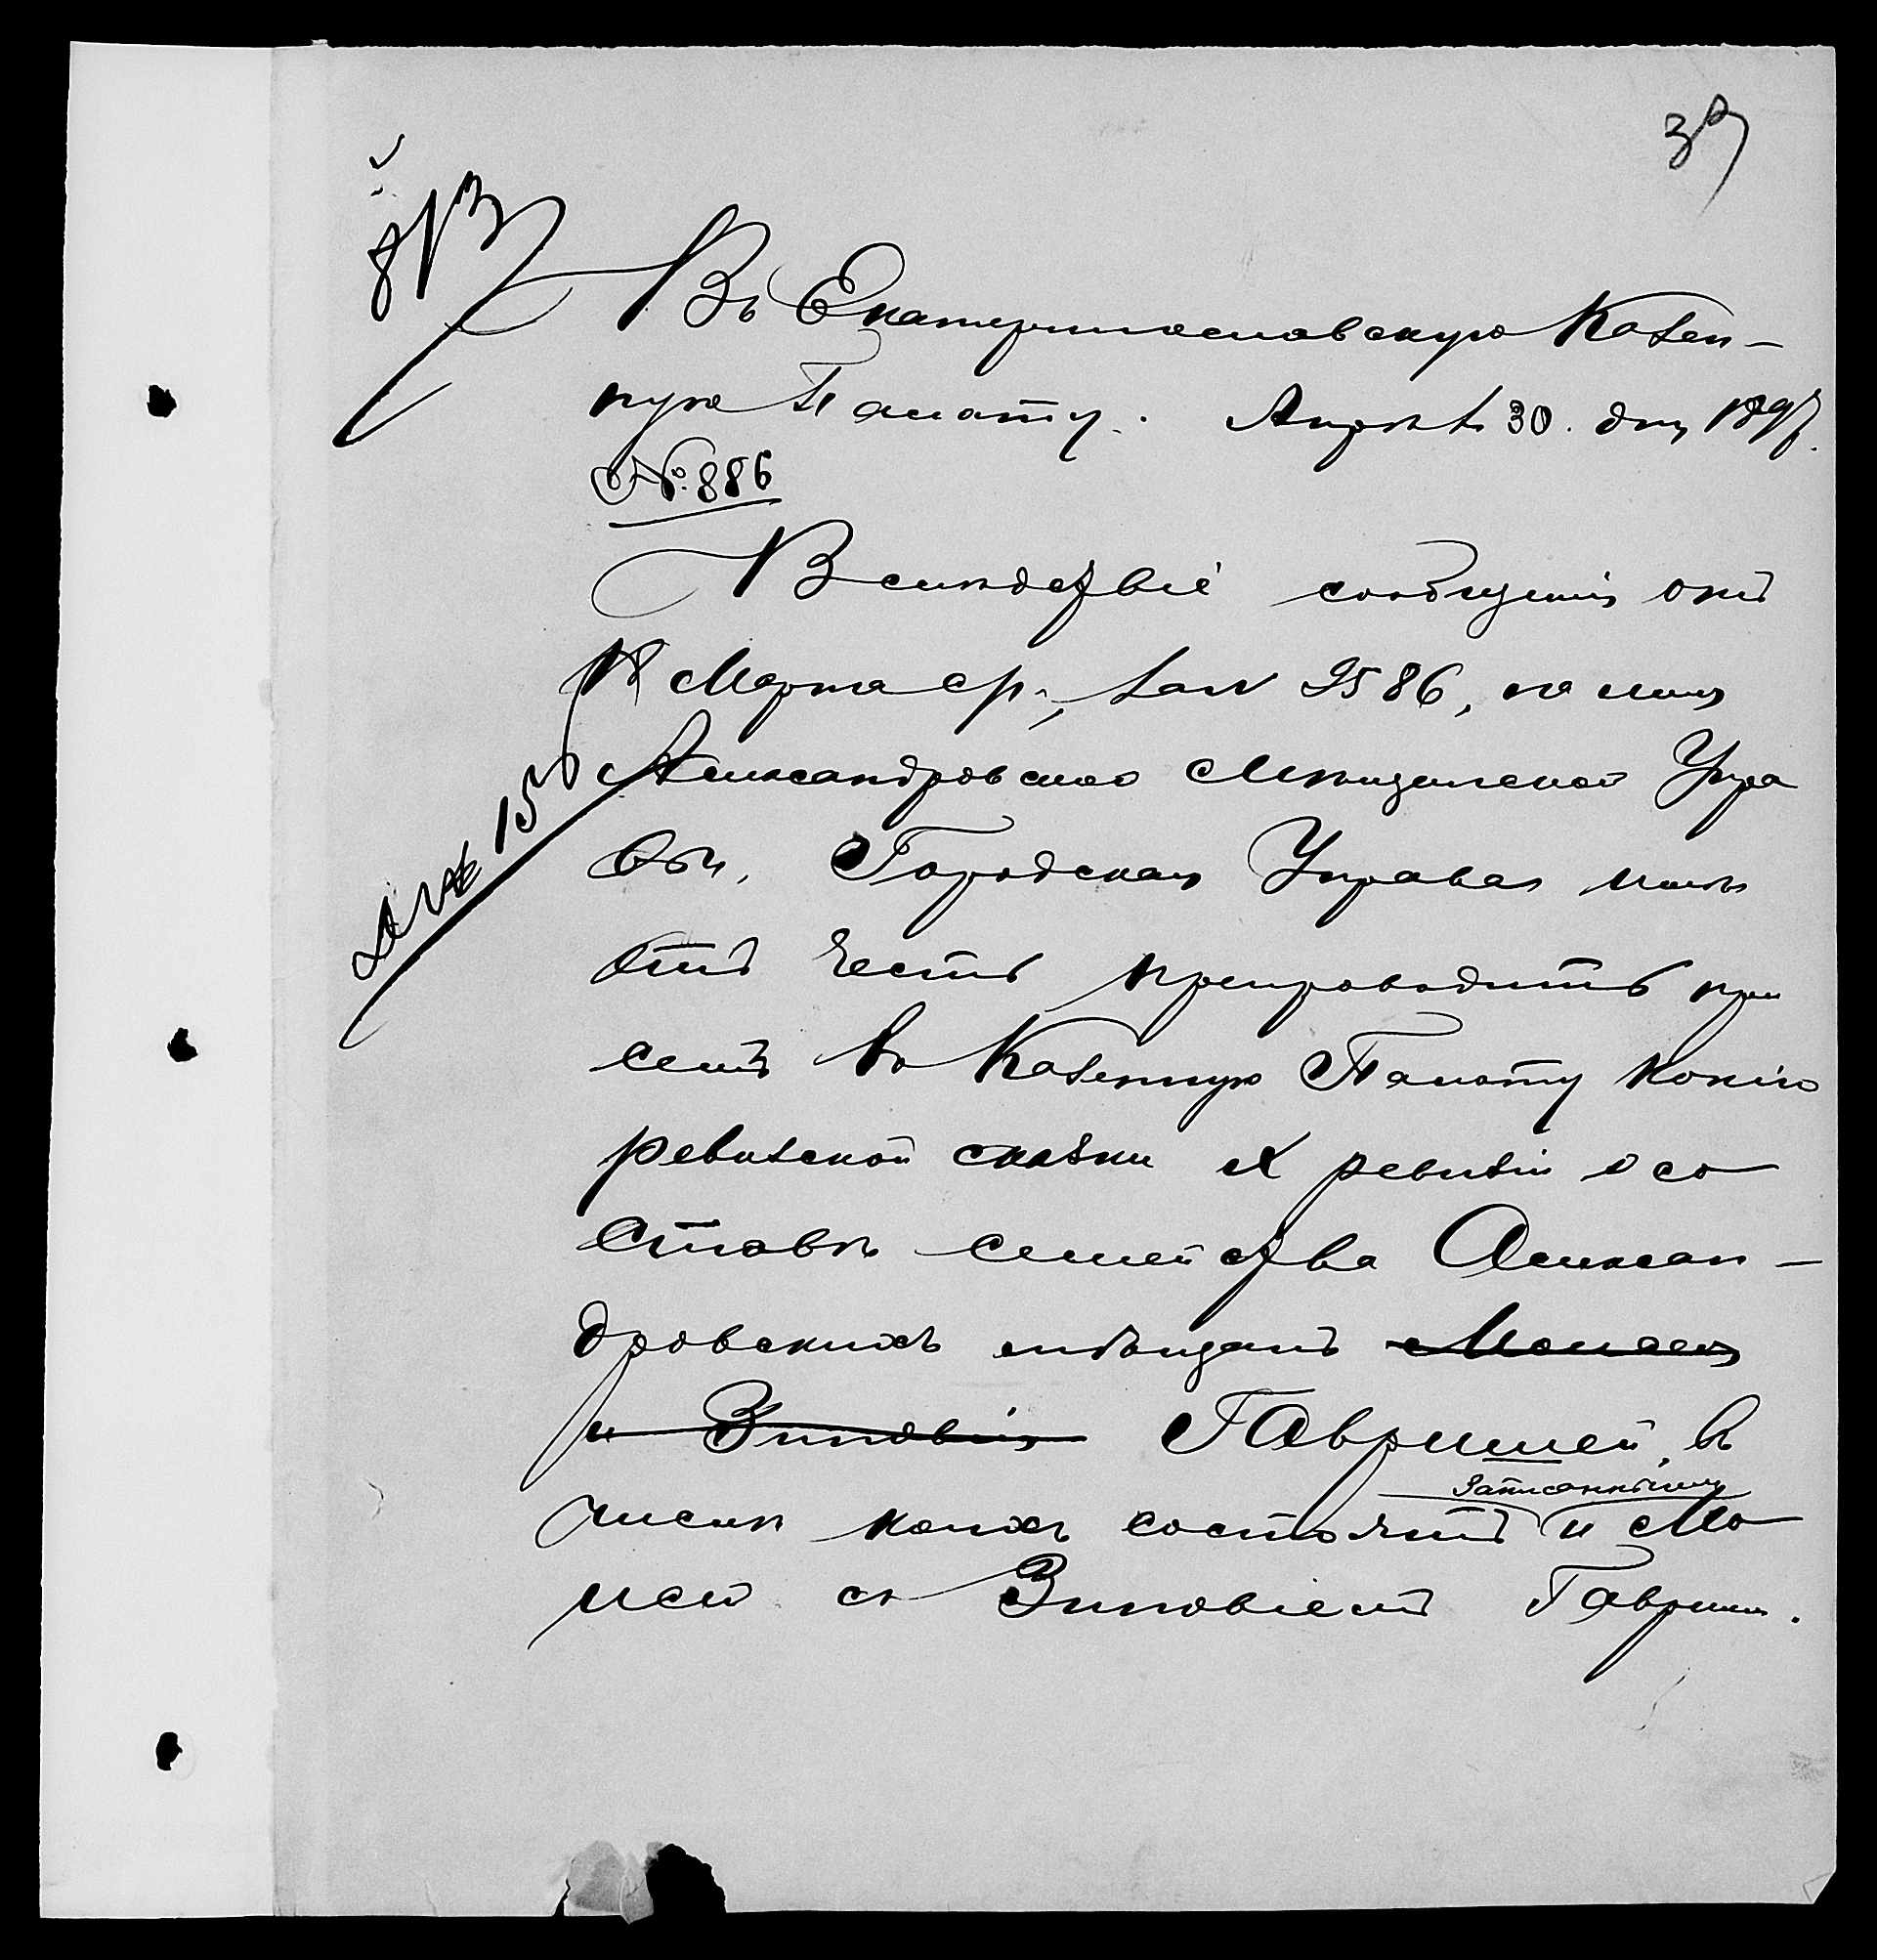 37
813
Въ Екатеринославскую Казен-
ную Палату. Апрѣля 30 дня 1897.
№ 886
Вслѣдствіе сообщенія отъ
18 Марта с/г., за № 2586, на имя
Александровской Мѣщанской Упра
вы, Городская Управа имѣ
етъ честь препроводить при
семъ въ Казенную Палату копію
ревизской сказки X ревизіи о со
ставѣ семейства Алексан-
дровскихъ мѣщанъ Моисея
и Зиновія Гавришей, въ
записанными
числѣ коихъ состоятъ и Мо
исей съ Зиновіемъ Гавриши.